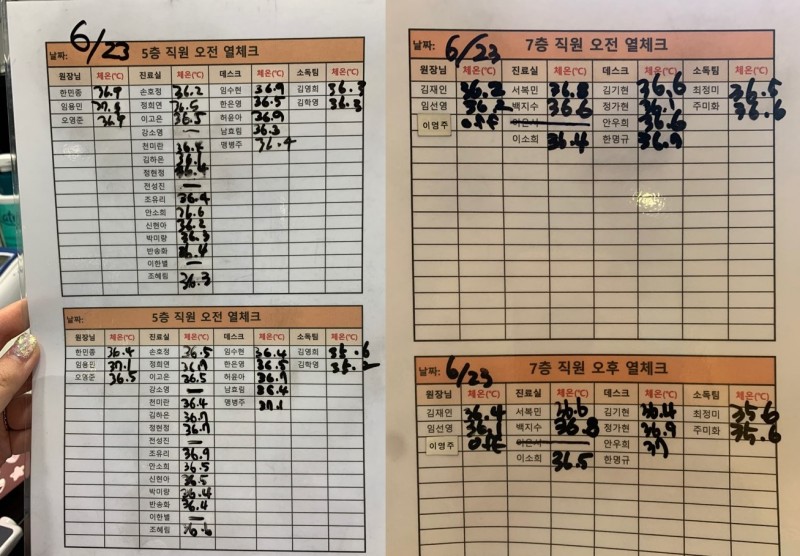 날짜: 6/23 5층 직원 오전 열체크
원장님 체온(℃) 진료실 체온(℃) 데스크 체온(℃) 소독팀 체온(℃)
한민종 36.9 손호정 36.2 임수현 36.9 김영희 36.3
임용민 정희연 36.5 한은영 36.5 김학영 36.3
오영준 36.9 이고은 36.5 허윤아 36.9
강소영 — 남효림 36.3
천미란 36.4 명병주 36.4
김하은
정현정 36.4
전성진 —
조유리 36.4
안소희 36.6
신현아 36.2
박미량 36.3
반송화 36.4
이한별 —
조혜림 36.3
날짜: 5층 직원 오전 열체크
원장님 체온(℃) 진료실 체온(℃) 데스크 체온(℃) 소독팀 체온(℃)
한민종 36.4 손호정 36.5 임수현 36.4 김영희
임용민 37.1 정희연 36.9 한은영 36.5 김학영
오영준 36.5 이고은 36.5 허윤아 36.7
강소영 — 남효림 36.4
천미란 36.4 명병주 37.1
김하은 36.7
정현정 36.7
전성진 —
조유리 36.9
안소희 36.5
신현아 36.5
박미량 36.4
반송화 36.4
이한별 —
조혜림 36.6
날짜: 6/23 7층 직원 오전 열체크
원장님 체온(℃) 진료실 체온(℃) 데스크 체온(℃) 소독팀 체온(℃)
김재인 36.2 서복민 36.8 김기현 36.6 최정미 36.5
임선영 36.2 백지수 36.6 정가현 36.1 주미화 36.6
이영주 off 안우희 36.6
이소희 36.4 한명규 36.9
날짜: 6/23 7층 직원 오후 열체크
원장님 체온(℃) 진료실 체온(℃) 데스크 체온(℃) 소독팀 체온(℃)
김재인 36.4 서복민 36.6 김기현 36.4 최정미 35.6
임선영 36.1 백지수 36.8 정가현 36.9 주미화 35.6
이영주 off 안우희 37
이소희 36.5 한명규